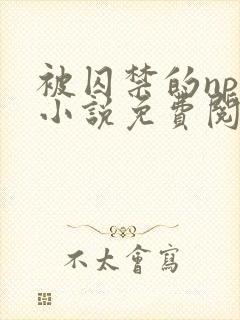 被囚禁的np
小说免费阅
不太會寫